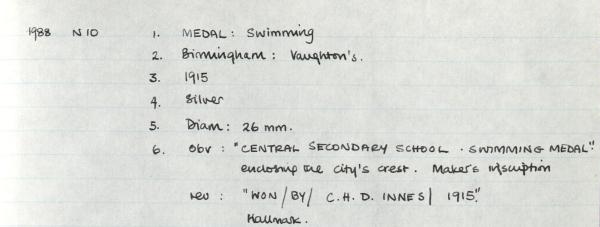 1988 N 10 1. MEDAL: Swimming
2. Birmingham: Vaughton's.
3. 1915
4. Silver
5. Diam: 26 mm.
6. Obv: "CENTRAL SECONDARY SCHOOL · SWIMMING MEDAL".
enclosing the city's crest. Maker's inscription
rev: "WON/BY/ C.H.D. INNES/ 1915".
Hallmark.